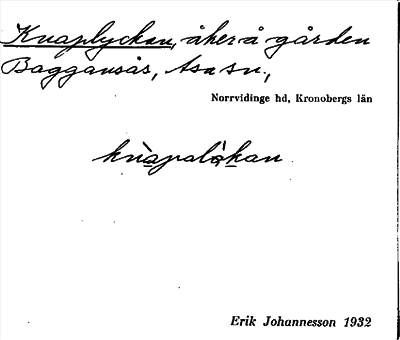 Knaplyckan, åker å gården
Baggansås, Asa sn.,
Norrvidinge hd, Kronobergs län
knàpalỳkan
Erik Johannesson 1932